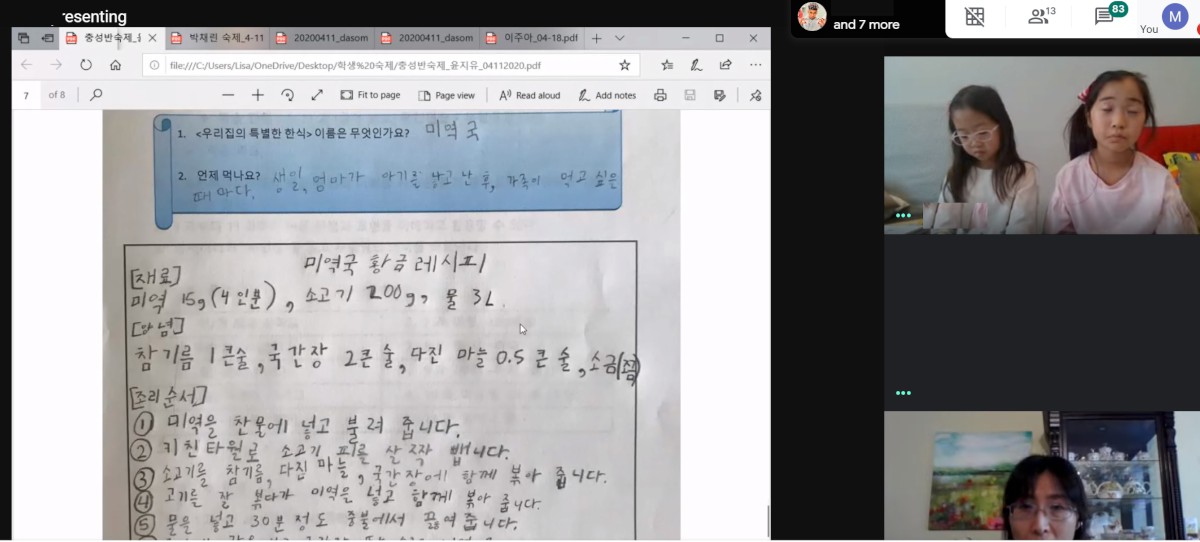 resenting
and 7 more
13
83
You
M
충성반숙제_윤
박채린 숙제_4-11
20200411_dasom
20200411_dasom
이주아_04-18.pdf
file:///C:/Users/Lisa/OneDrive/Desktop/학생%20숙제/충성반숙제_윤지유_04112020.pdf
7 of 8
Fit to page
Page view
Read aloud
Add notes
1. <우리집의 특별한 한식> 이름은 무엇인가요? 미역국
2. 언제 먹나요? 생일, 엄마가 아기를 낳고 난 후, 가족이 먹고 싶은
때마다.
미역국 황금레시피
[재료]
미역 15g(4인분), 소고기 200g, 물 3L.
[양념]
참기름 1큰술, 국간장 2큰술, 다진 마늘 0.5큰술, 소금(조금)
[조리순서]
① 미역을 찬물에 넣고 불려 줍니다.
② 키친타월로 소고기 피를 살짝 뺍니다.
③ 소고기를 참기름, 다진 마늘, 국간장에 함께 볶아 줍니다.
④ 고기를 잘 볶다가 미역을 넣고 함께 볶아 줍니다.
⑤ 물을 넣고 30분 정도 중불에서 끓여줍니다.